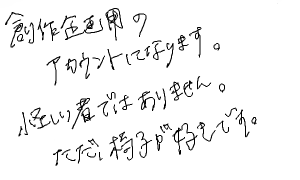 創作企画用の
アカウントになります。
怪しい者ではありません。
ただ、椅子が好きです。